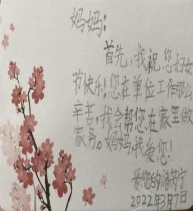 妈妈：
首先，我祝您妇女
节快乐！您在单位工作那么
辛苦！我会帮您在家里做
家务。妈妈，我爱您！
爱您的潘
2022年3月7日